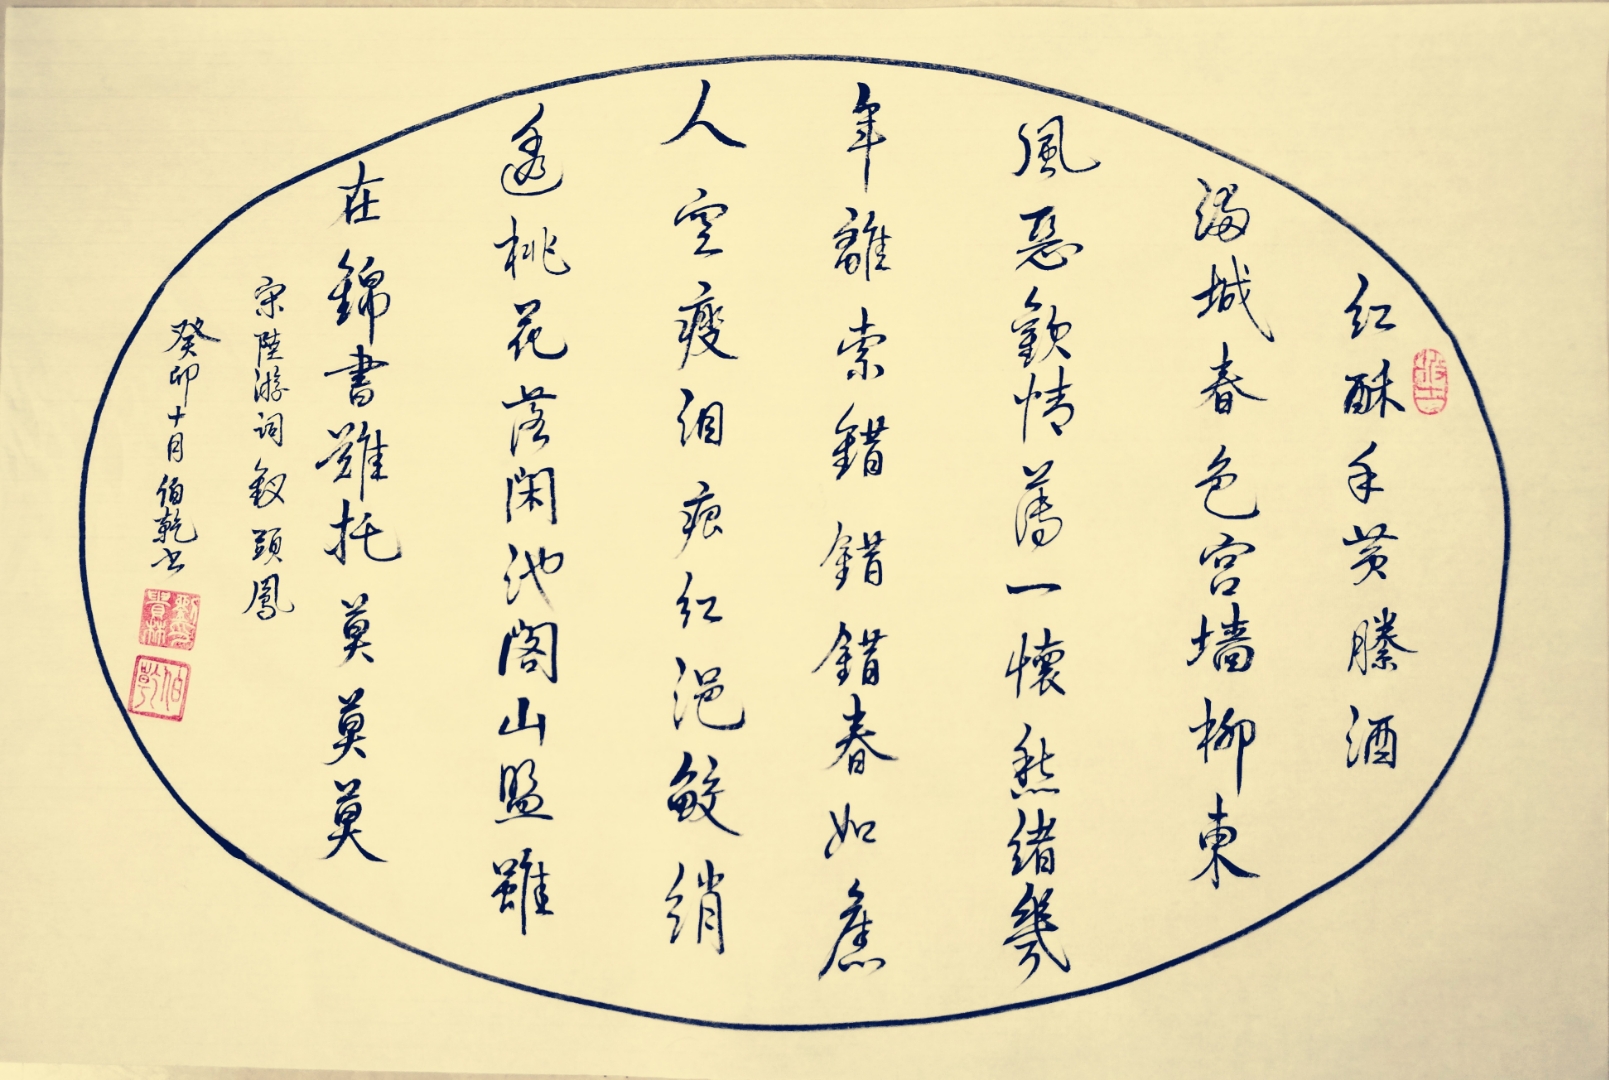 红酥手黄縢酒
满城春色宫墙柳東
風惡歡情薄一懷愁緒幾
年離索錯錯錯春如舊
人空瘦泪痕红浥鮫绡
透桃花落閑池閣山盟雖
在錦書難托莫莫莫
宋陸游词釵頭鳳
癸卯十月伯乾书
伯乾